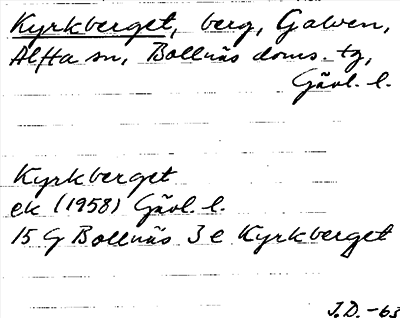 Kyrkberget, berg, Galven,
Alfta sn, Bollnäs doms. tg,
Gävl. l.
Kyrkberget
ek (1958) Gävl. l.
15 G Bollnäs 3 e Kyrkberget
J.D. -63